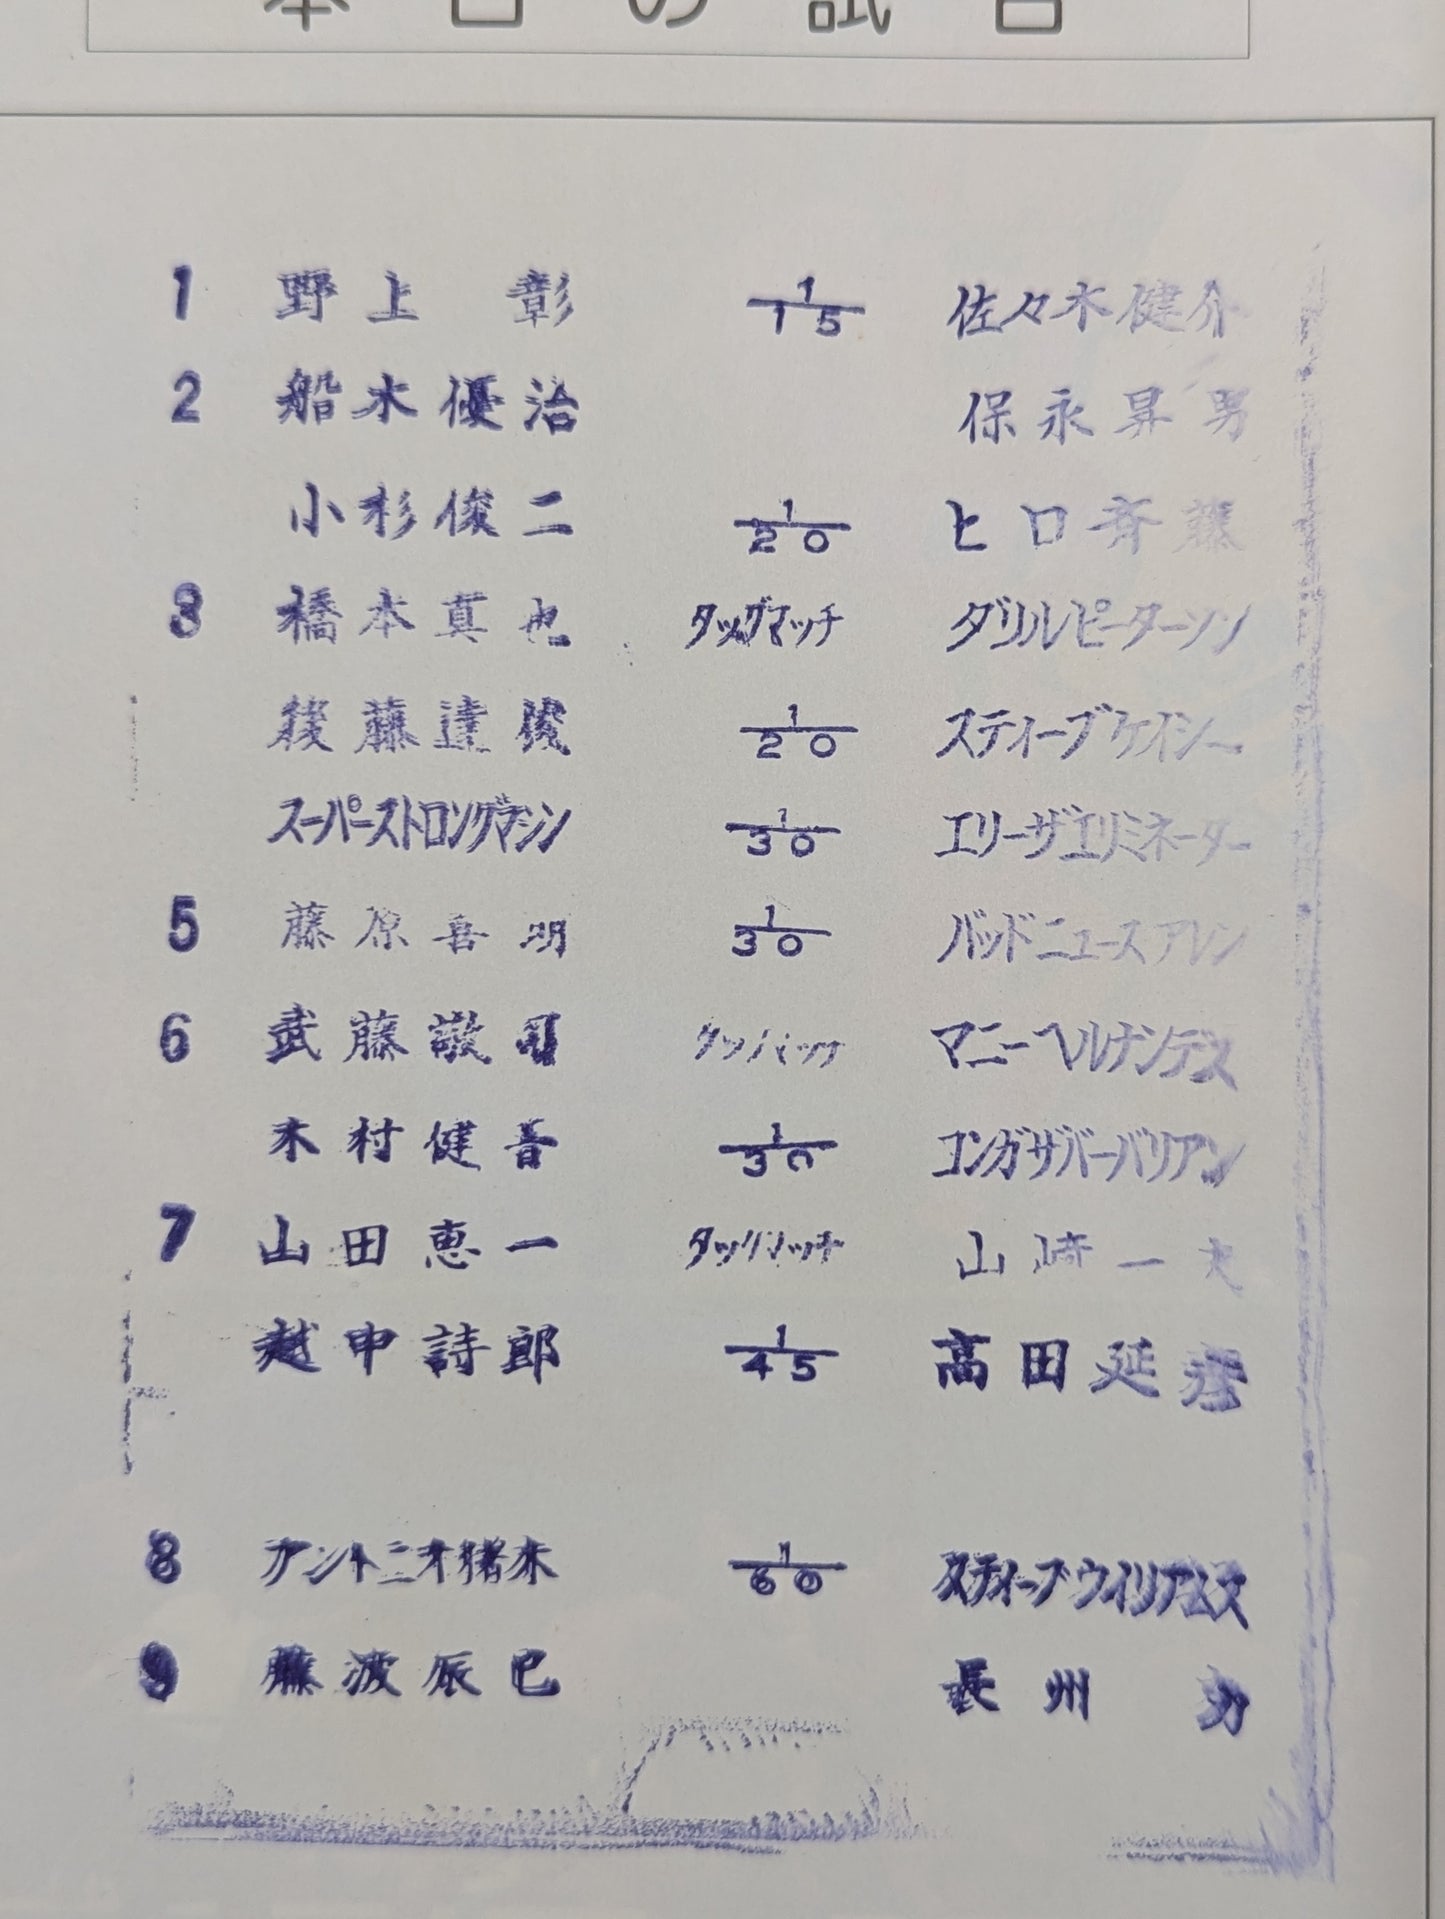 本日の試合
1 野上 彰 1/15 佐々木健介
2 船木優治 保永昇男
小杉俊二 1/20 ヒロ斉藤
3 橋本真也 タッグマッチ ダリルピーターソン
後藤達俊 1/20 スティーブケイシー
スーパーストロングマシン 1/30 エリーザエリミネーター
5 藤原喜明 1/30 バッドニュースアレン
6 武藤敬司 タッグマッチ マニーヘルナンデス
木村健吾 1/30 コンガザバーバリアン
7 山田恵一 タッグマッチ 山崎一夫
越中詩郎 1/45 高田延彦
8 アントニオ猪木 1/60 スティーブウイリアムス
9 藤波辰巳 長州 力